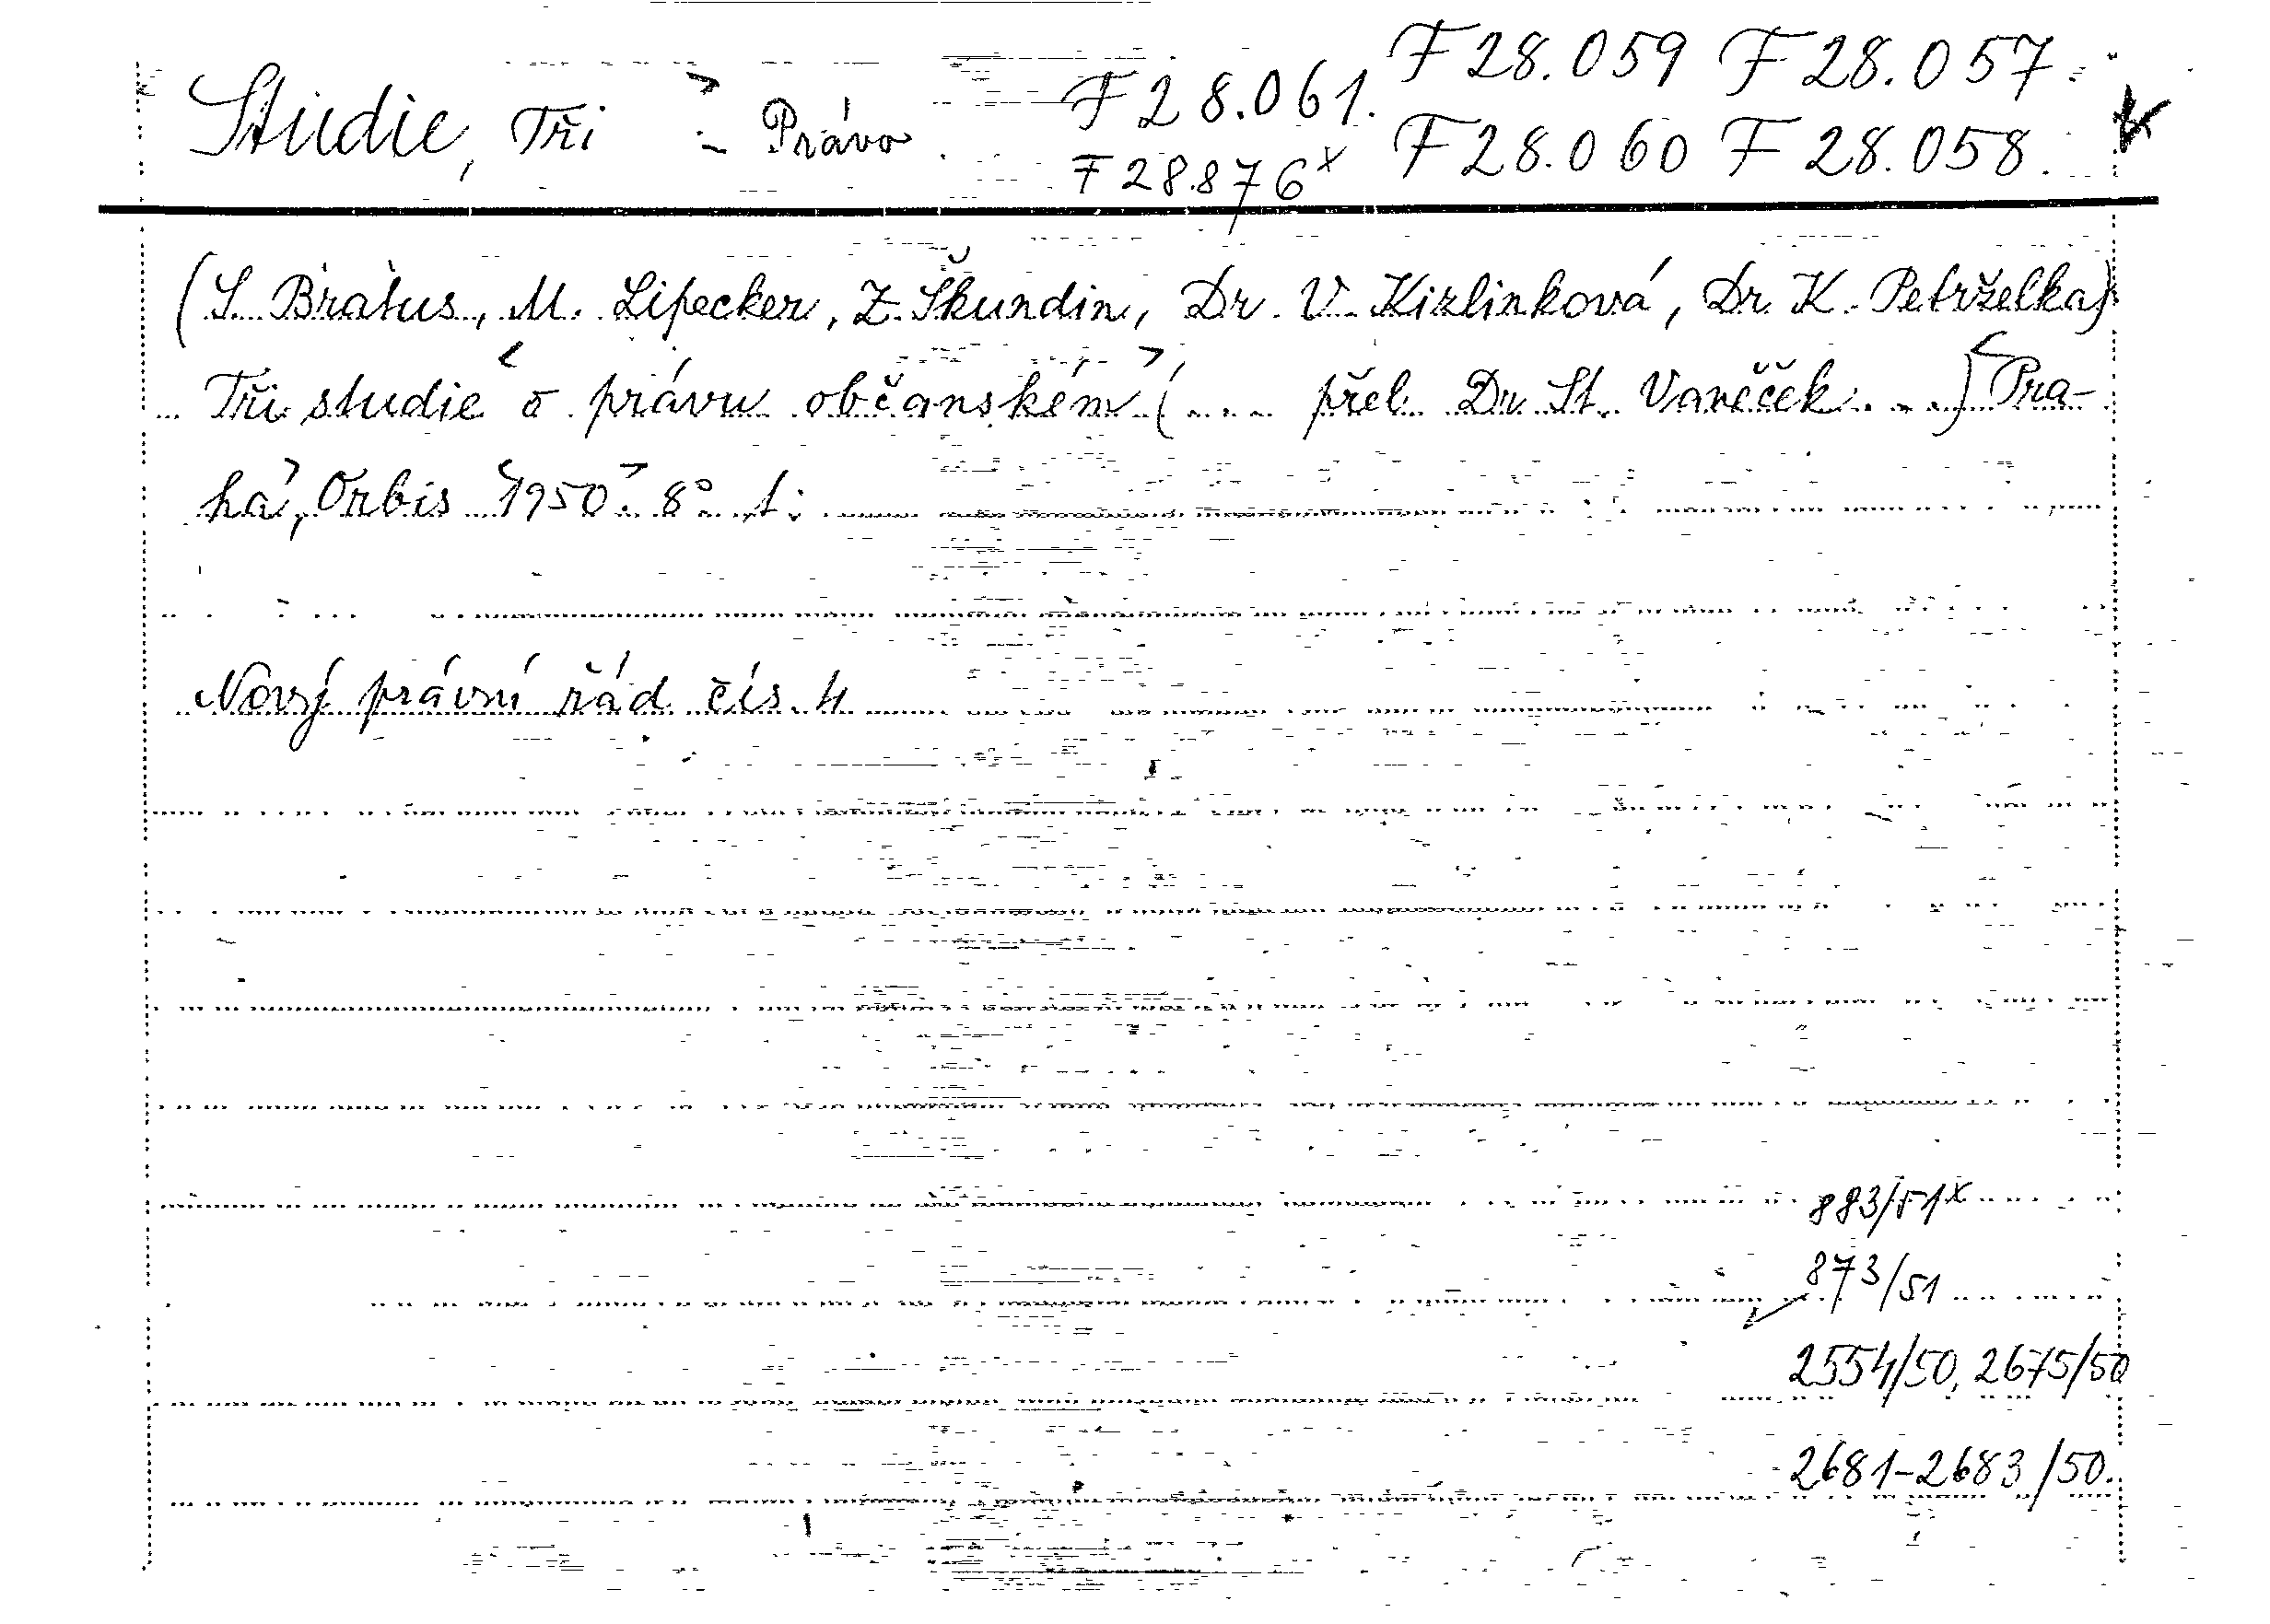 Studie, Tři - Právo F 28.061. F 28.059 F 28.057.
F 28.876x F 28.060 F 28.058.
(S. Bratus, M. Lipecker, Z. Škundin, Dr. V. Kizlinková, Dr. K. Petrželka)
Tři studie o právu občanském (.... přel. Dr. St. Vaněček....) Pra-
ha, Orbis 1950. 8° t:
Nový právní řád čís. 4
883/51x
873/51
2554/50, 2675/50
2681-2683/50.